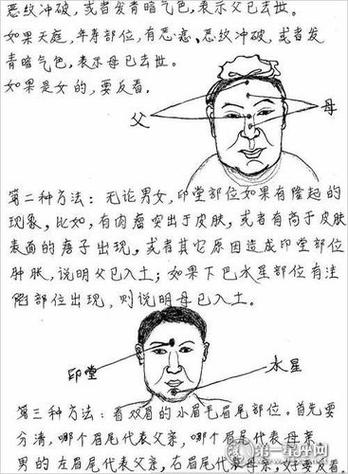 恶纹冲破，或者发青暗气色，表示父已去世。
如果天庭，年寿部位，有恶痣、恶纹冲破，或者发
青暗气色，表示母已去世。
如果是女的，要反看。
父
母
第二种方法：无论男女，印堂部位如果有隆起的
现象，比如，有肉瘤突出于皮肤，或者有高于皮肤
表面的痞子出现，或者其它原因造成印堂部位
肿胀，说明父已入土；如果下巴水星部位有洼
陷部位出现，则说明母已入土。
印堂
水星
第三种方法：看双眉的小眉毛眉尾部位。首先要
分清，哪个眉尾代表父亲，哪个眉尾代表母亲。
男的左眉尾代表父亲，右眉尾代表母亲，女要反看。
第一星座网